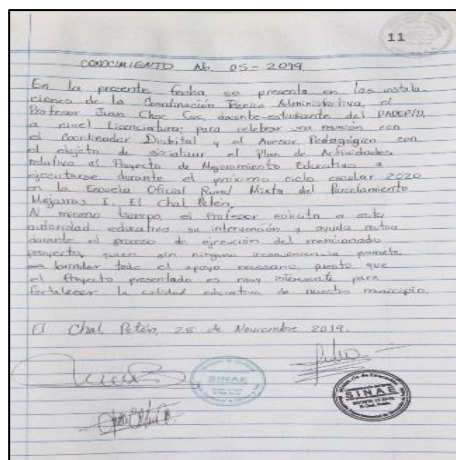 11
CONOCIMIENTO No. 05-2019
En la presente fecha, se presenta en las instala-
ciones de la Coordinación Técnica Administrativa, el
Profesor Juan Choc Cus, docente-estudiante del PADEP/D,
a nivel Licenciatura; para celebrar una reunión con
el Coordinador Distrital y el Asesor Pedagógico con
el objeto de socializar el Plan de Actividades
relativo al Proyecto de Mejoramiento Educativo a
ejecutarse durante el próximo ciclo escolar 2020
en la Escuela Oficial Rural Mixta del Parcelamiento
I, El Chal, Petén.
Al mismo tiempo, el Profesor solicita a esta
autoridad educativa su intervención y ayuda mutua
durante el proceso de ejecución del mencionado
proyecto, quien sin ninguna inconveniencia promete
en brindar todo el apoyo necesario, puesto que
el Proyecto presentado es muy interesante para
fortalecer la calidad educativa de nuestro municipio.
El Chal, Petén, 28 de Noviembre 2019.
SINAE
SINAE